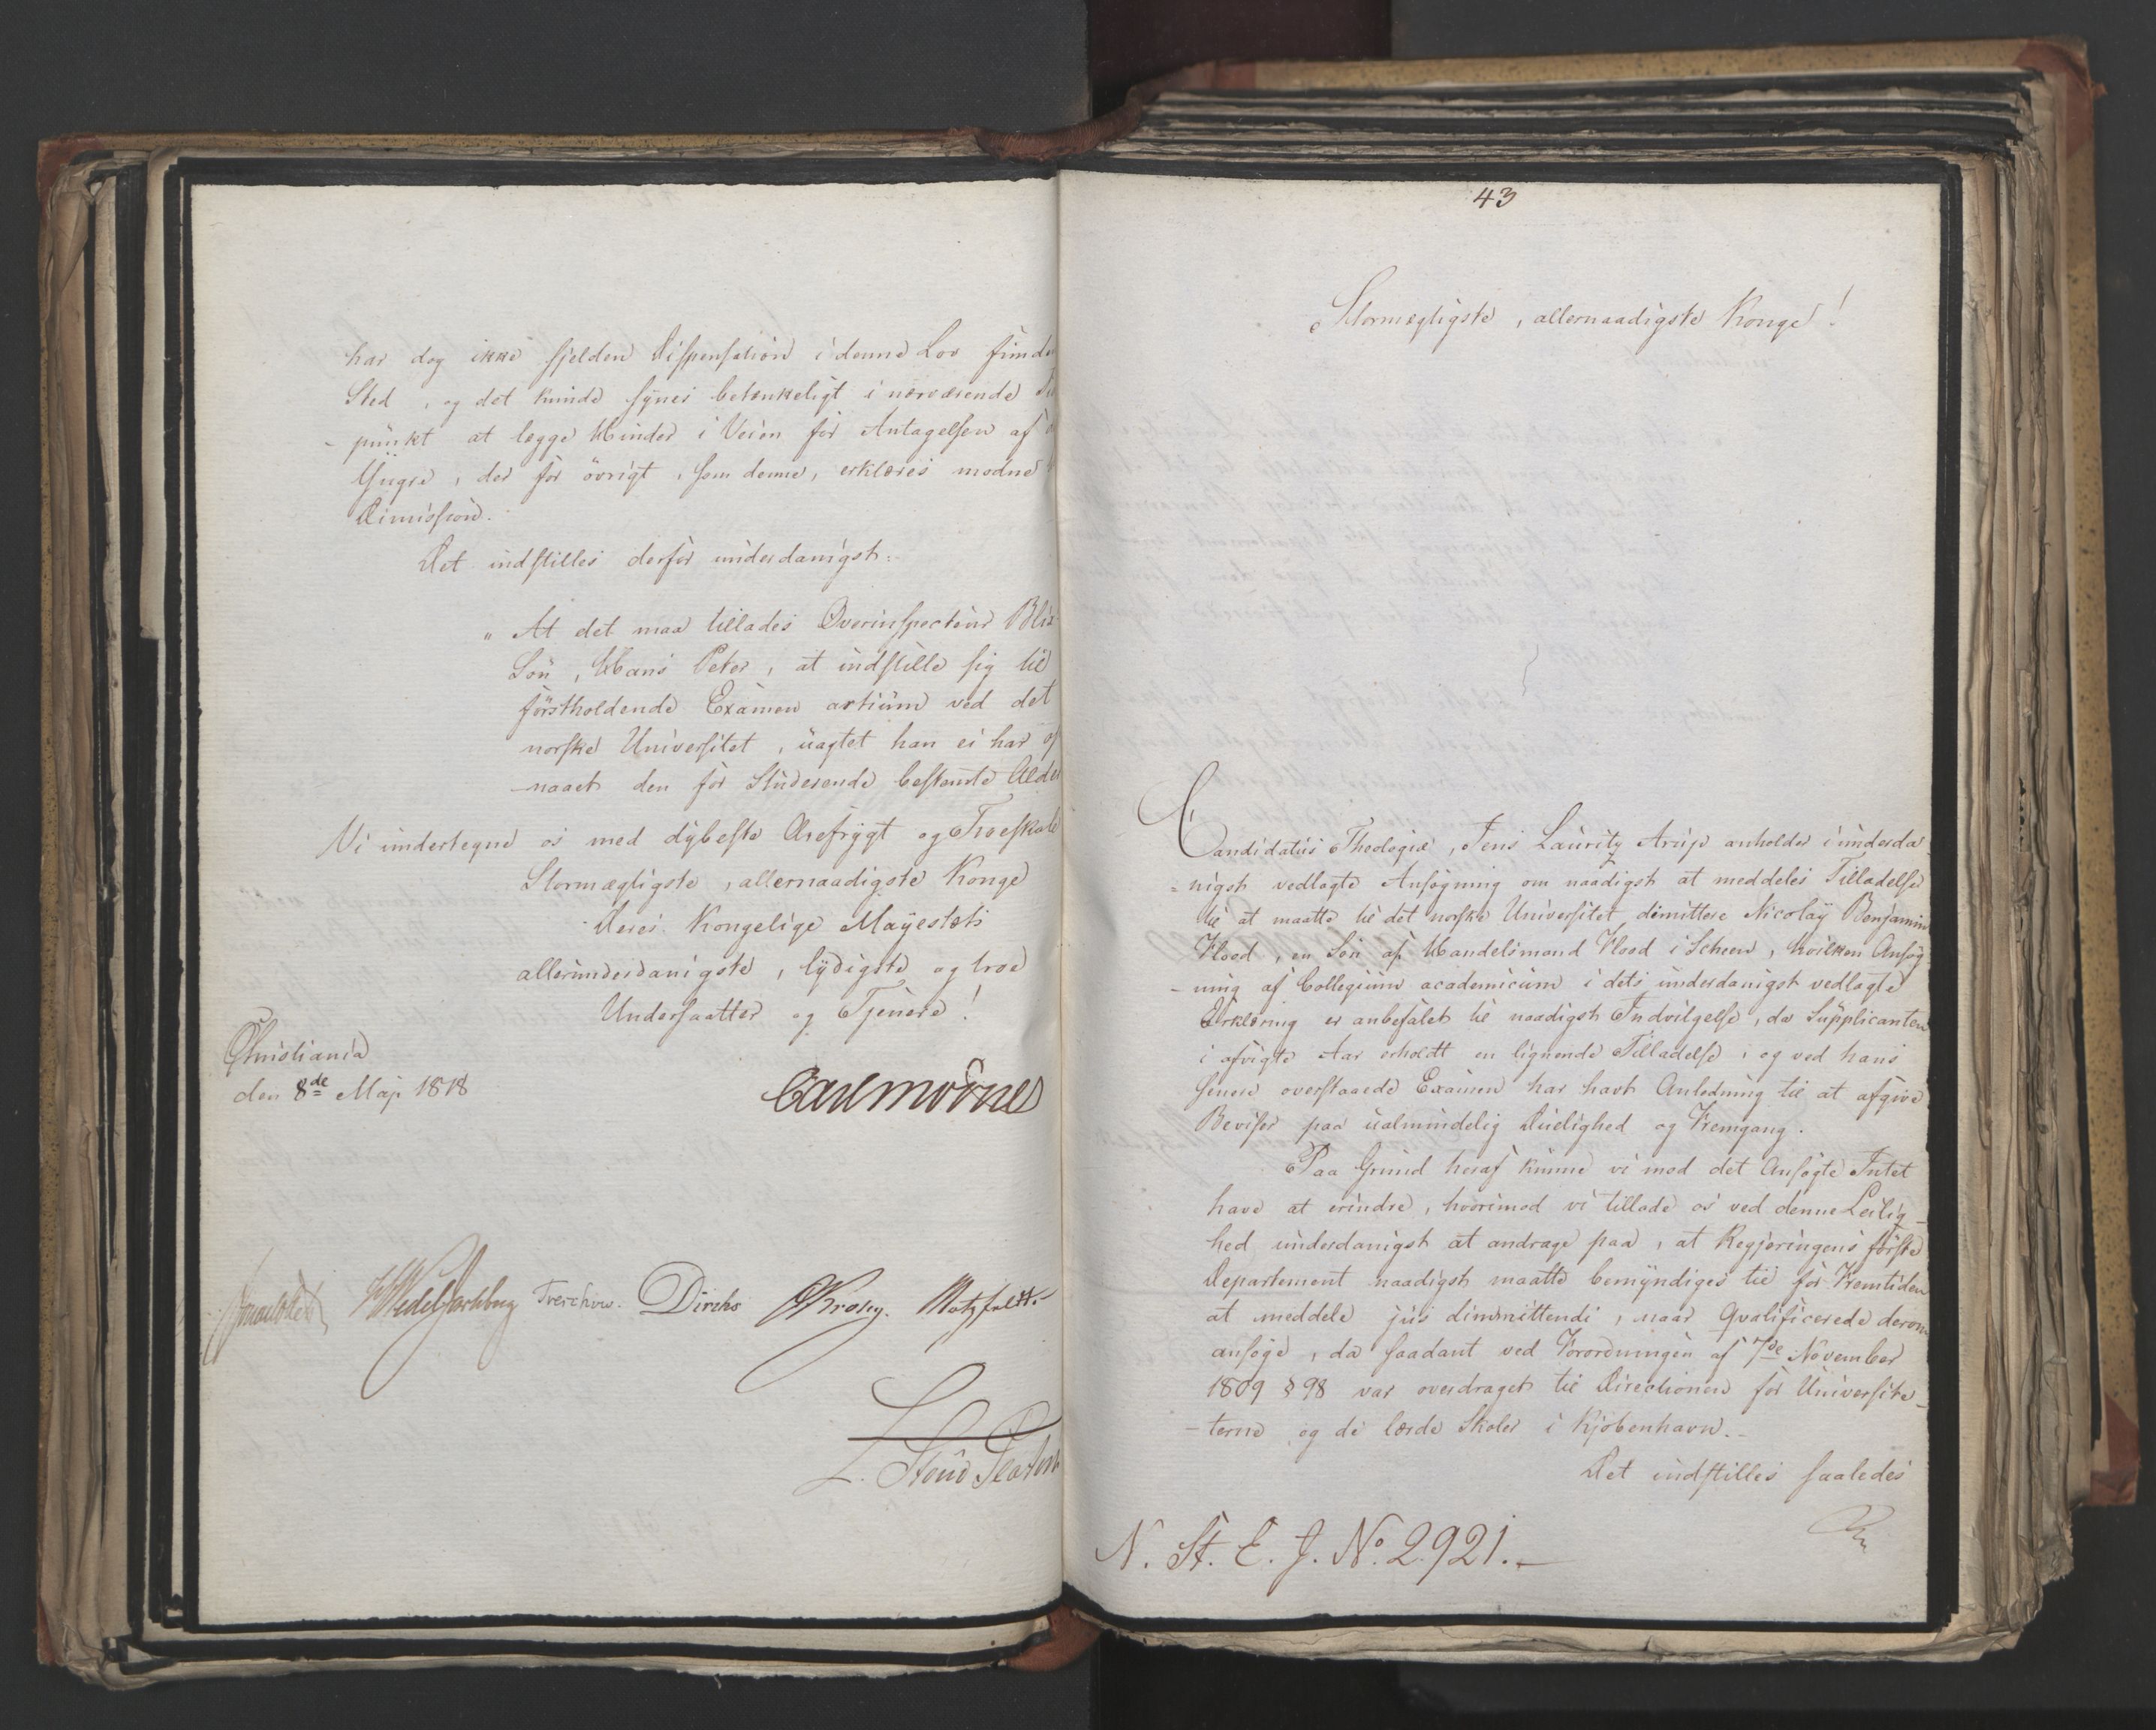 har dog ikke sjelden Dispensation i denne Lov funde
Sted, og det kunde synes betænkeligt i nærværende
- punkt at lægge Hinder i Veien for Antagelsen af
Yngre, der for övrigt, som denne, erklæres modne
Dimission.
Det indstilles derfor underdanigst:
„ At det maa tillades Overinspecteur Blix
Sön, Hans Peter, at indstille sig til
förstholdende Examen artium ved det
norske Universitet, uagtet han ei har op
-naaet den for Studerende bestemte Alder
Vi undertegne os med dybeste Ærefrygt og Troeskab
Stormægtigste, allernaadigste Konge
Deres Kongelige Mayestæts
allerunderdanigste, lydigste og troe
Undersaatter og Tjenere!
Christiania
den 8de Maji 1818
Carl Mörner
Sommerhielm WedelJarlsberg Treschow. Diriks Krohg. Motzfeldt.
L. Stoud Platou
43
Stormægtigste, allernaadigste Konge!
Candidatus Theologiæ, Jens Lauritz Arup anholder i underda
= nigst vedlagte Ansögning om naadigst at meddeles Tilladelse
til at maatte til det norske Universitet dimittere Nicolay Benjamin
Flood, en Sön af Handelsmand Flood i Scheen, hvilken Ansög
- ning af Collegium academicum i dets underdanigst vedlagte
Erklæring er anbefalet til naadigst Indvilgelse, da Supplicanten
i afvigte Aar erholdt en lignende Tilladelse, og ved hans
senere overstaaede Examen har havt Anledning til at afgive
Beviser paa ualmindelig Duelighed og Fremgang.
Paa Grund heraf kunne vi mod det Ansögte Intet
have at erindre, hvorimod vi tillade os ved denne Leilig-
hed underdanigst at andrage paa, at Regjeringens förste
Departement naadigst maatte bemyndiges til for Fremtiden
at meddele jus dimmittendi, naar Qvalificerede derom
ansöge, da saadant ved Forordningen af 7de November
1809 § 98 var overdraget til Directionen for Universite-
- terne og de lærde Skoler i Kjöbenhavn.-
Det indstilles saaledes
N. St. E. J. No. 2921.-